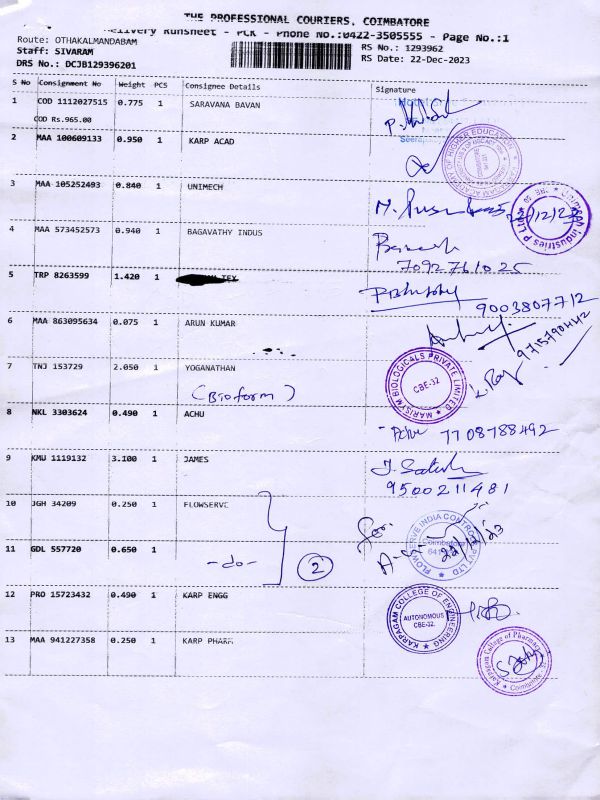 THE PROFESSIONAL COURIERS, COIMBATORE
Delivery Runsheet - PCK - Phone No.:0422-3505555 - Page No.:1
Route: OTHAKALMANDABAM
RS No.: 1293962
Staff: SIVARAM
RS Date: 22-Dec-2023
DRS No.: DCJB129396201
S No Consignment No Weight PCS Consignee Details Signature
1 COD 1112027515 0.775 1 SARAVANA BAVAN
COD Rs.965.00
2 MAA 100609133 0.950 1 KARP ACAD
3 MAA 105252493 0.840 1 UNIMECH
22/12/23
Unimech Industries P Ltd
4 MAA 573452573 0.940 1 BAGAVATHY INDUS
7092761025
5 TRP 8263599 1.420 1 TEX
9003807712
6 MAA 863095634 0.075 1 ARUN KUMAR
9715790442
7 TNJ 153729 2.050 1 YOGANATHAN
(Bioform)
MARISYM BIOLOGICALS PRIVATE LIMITED
CBE-32
8 NKL 3303624 0.490 1 ACHU
7708788492
9 KMU 1119132 3.100 1 JAMES
9500211481
10 JGH 34209 0.250 1 FLOWSERVE
For.
FLOWSERVE INDIA CONTROLS PVT LTD
Coimbatore
22/12/23
11 GDL 557720 0.650 1 -do- 2
12 PRO 15723432 0.490 1 KARP ENGG
KARPAGAM COLLEGE OF ENGINEERING
AUTONOMOUS
CBE-32
13 MAA 941227358 0.250 1 KARP PHARM
Karpagam College of Pharmacy